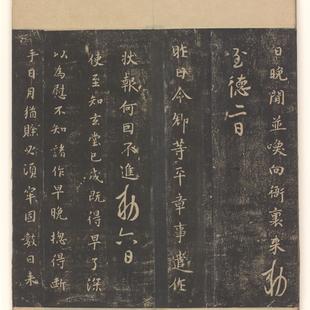 日晚間並喚向衙裏来勅
至德二日
昨日令卿等平章事遣作
狀報何因不進勅六日
使至知玄堂已成既得早了深
以為慰不知諸作早晚揔得断
手日月猶賖必須牢固数日来